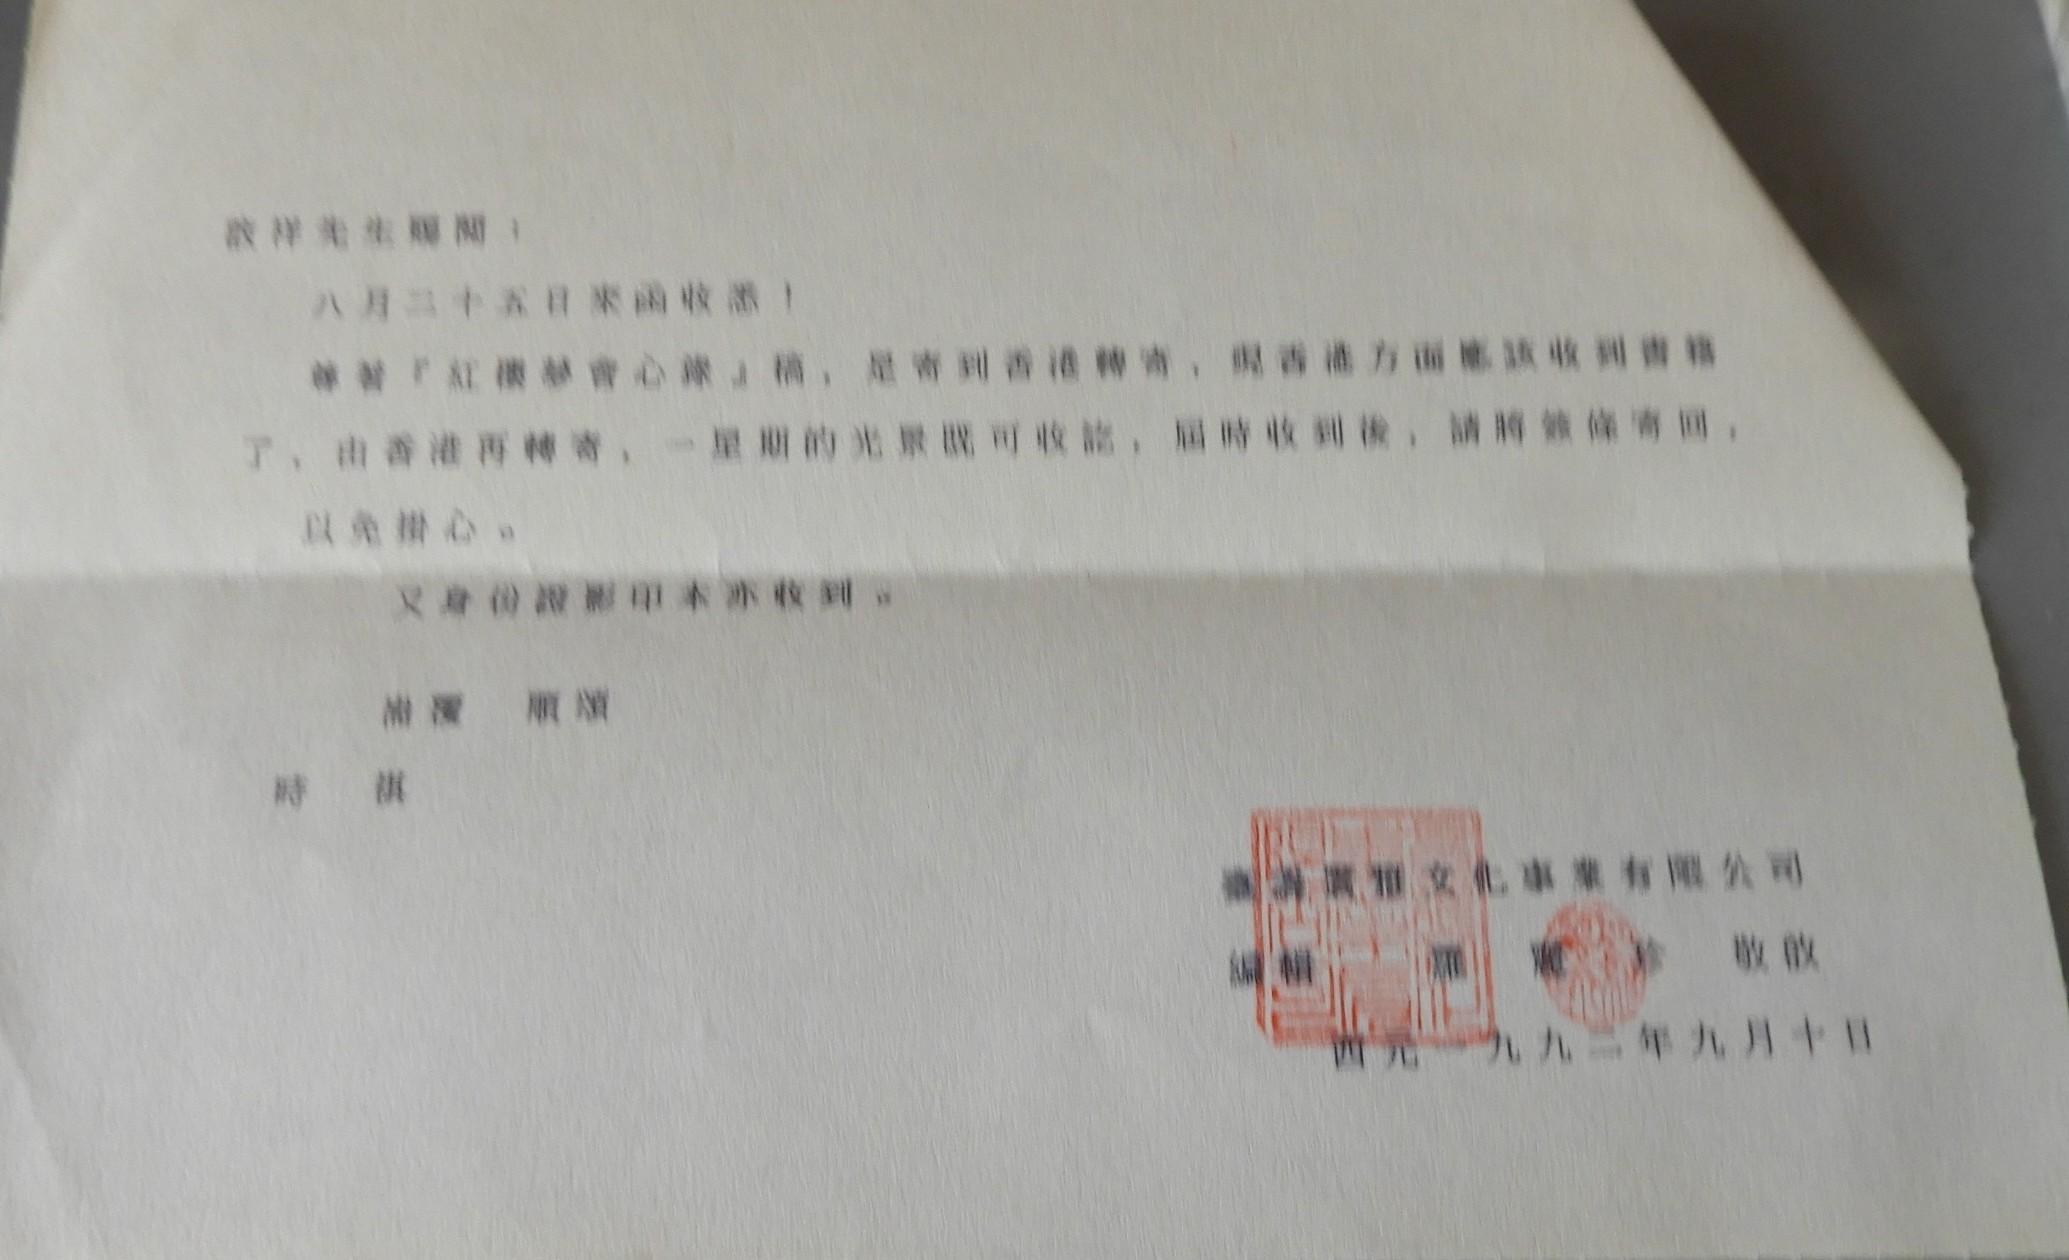 啟祥先生賜閱：
八月二十五日來函收悉！
尊著『紅樓夢會心錄』稿，是寄到香港轉寄，現香港方面應該收到書籍
了，由香港再轉寄，一星期的光景既可收訖，屆時收到後，請將簽條寄回，
以免掛心。
又身份證影印本亦收到。
耑覆　順頌
時　祺
臺灣廣雅文化事業有限公司
編輯　羅麗珍　敬啟
西元一九九二年九月十日